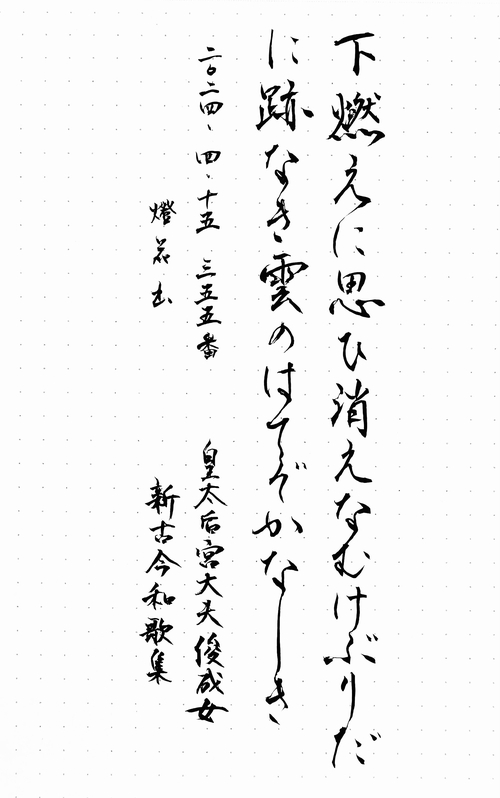 下燃えに思ひ消えなむけぶりだ
に跡なき雲のはてぞかなしき
二〇二四、四、十五 三五五番
皇太后宮大夫俊成女
新古今和歌集